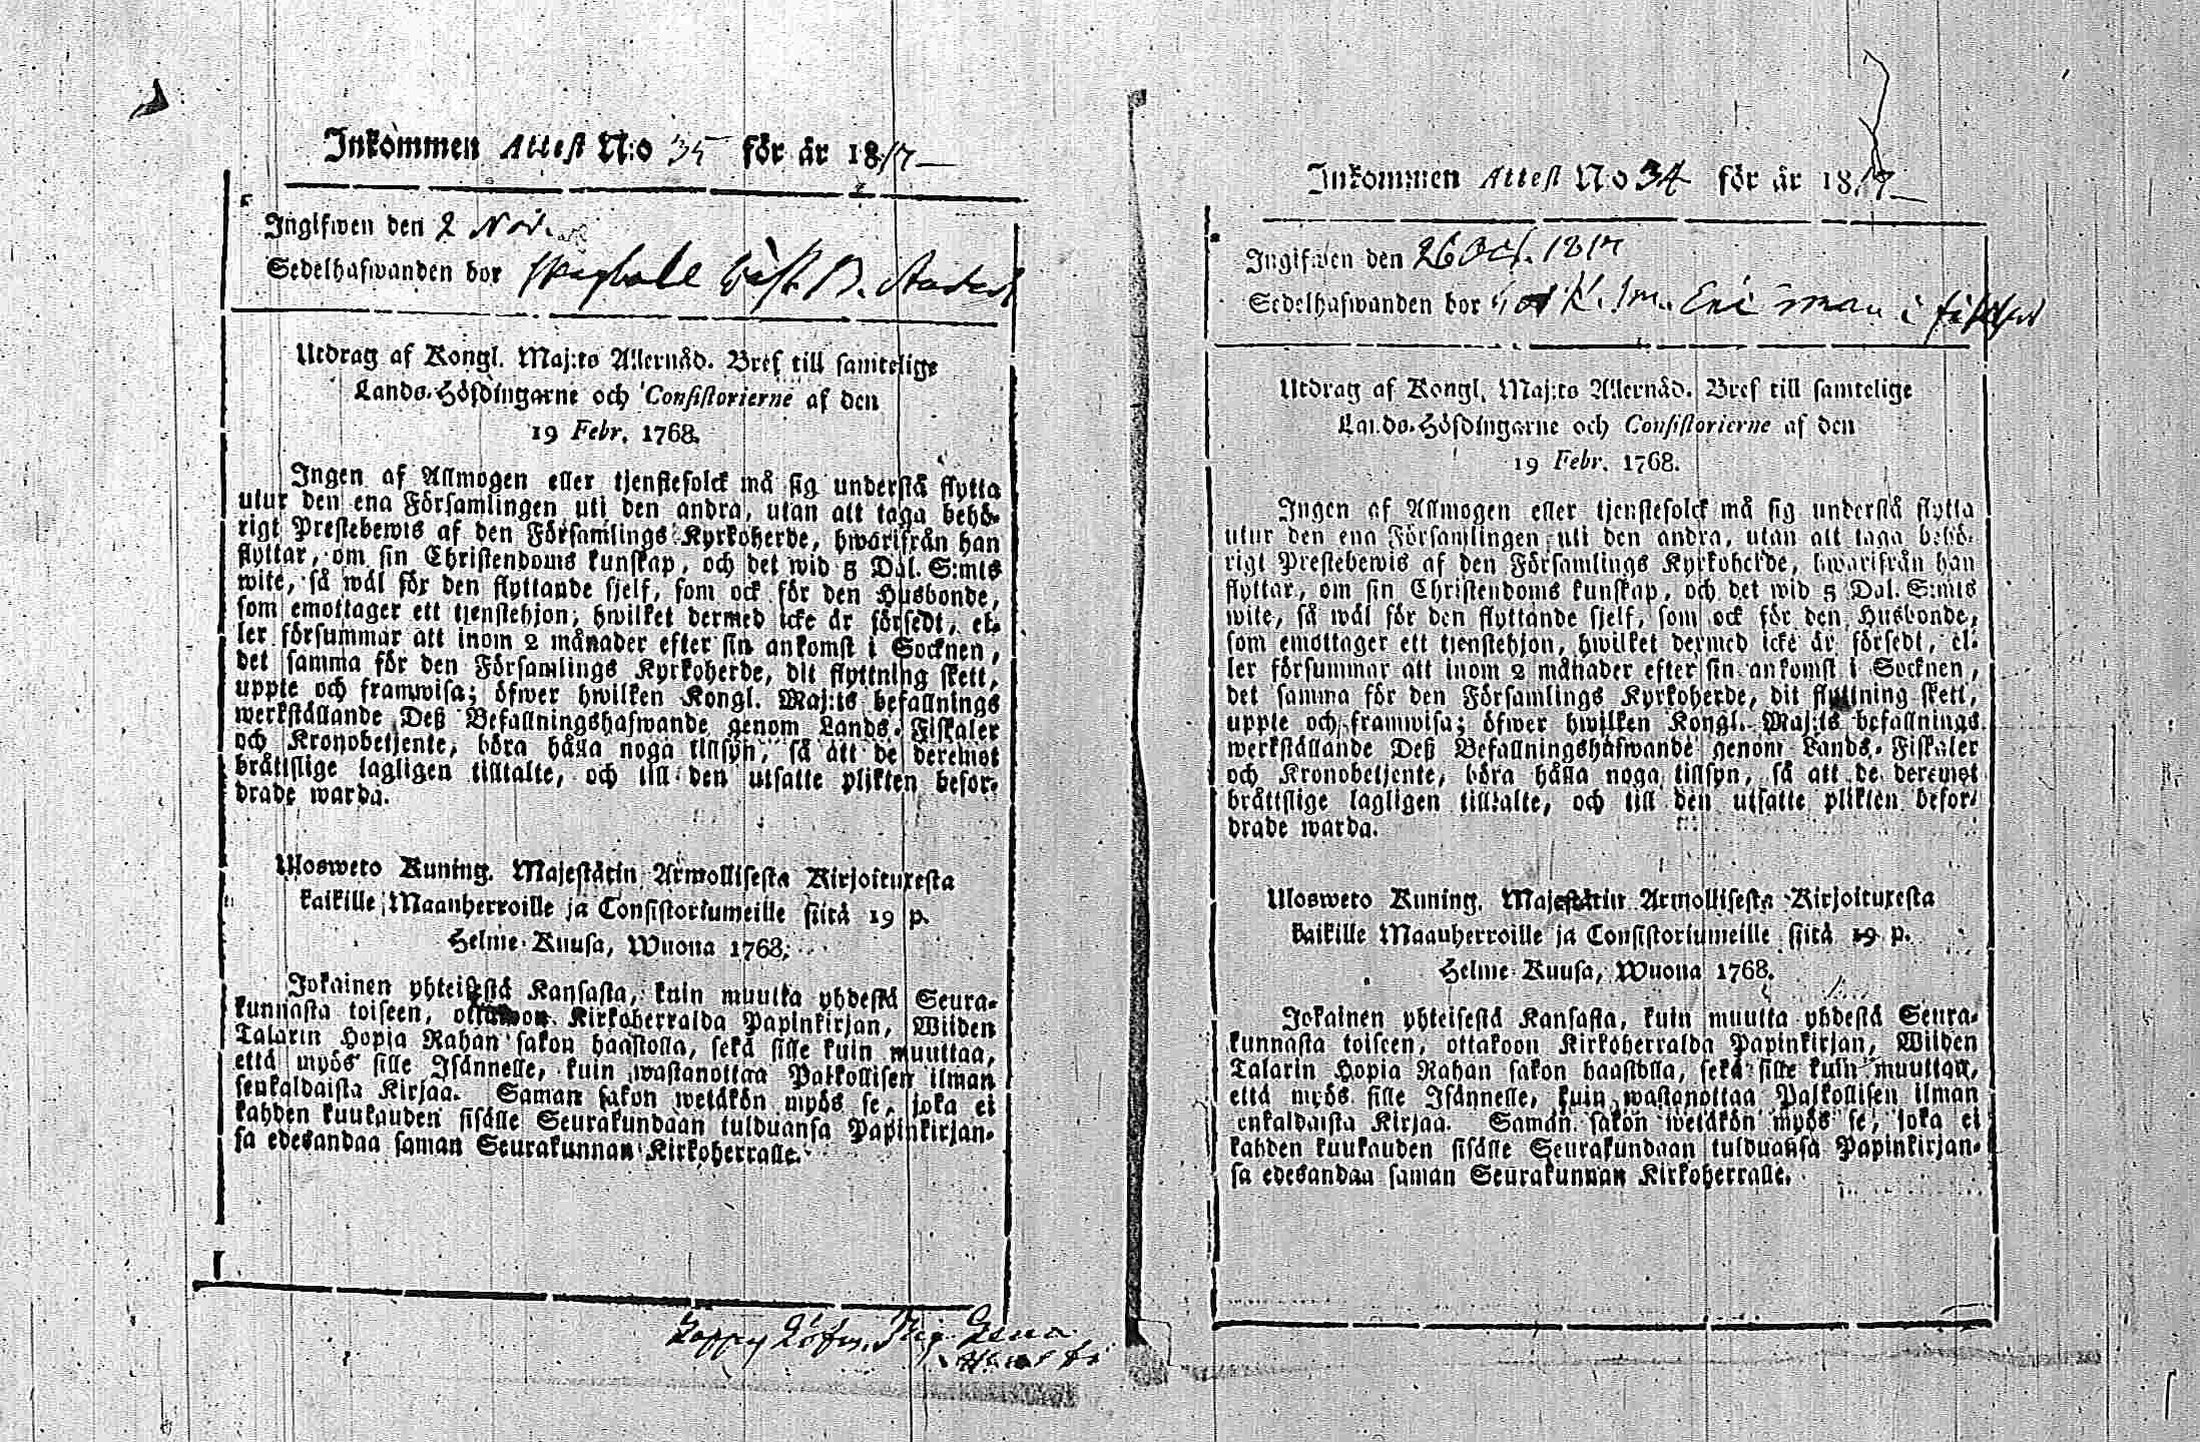 Inkommen Attest N:o 35 för år 1817
Ingifwen den 2 Nov.
Sedelhafwanden bor
Utdrag af Kongl. Maj:ts Allernåd. Bref till samtelige
Lands-Höfdingarne och Consistorierne af den
19 Febr. 1768.
Ingen af Allmogen eller tjenstefolck må sig understå flytta
utur den ena Församlingen uti den andra, utan att taga behö-
rigt Prestebewis af den Församlings Kyrkoherde, hwarifrån han
flyttar, om sin Christendoms kunskap, och det wid 5 Dal. S:mts
wite, så wäl för den flyttande sjelf, som ock för den Husbonde,
som emottager ett tjenstehjon, hwilket dermed icke är försedt, el-
ler försummar att inom 2 månader efter sin ankomst i Socknen,
det samma för den Församlings Kyrkoherde, dit flyttning skett,
uppte och framwisa; öfwer hwilken Kongl. Maj:ts befallnings
werkställande Deß Befallningshafwande genom Lands-Fiskaler
och Kronobetjente, böra hålla noga tillsyn, så att de deremot
bråttslige lagligen tilltalte, och till den utsatte plikten befor-
drade warda.
Ulosweto Kuning. Majestätin Armollisesta Kirjoituxesta
kaikille Maanherroille ja Consistoriumeille siitä 19 p.
Helme-Kuusa, Wuona 1768.
Jokainen yhteisestä Kansasta, kuin muutta yhdestä Seura-
kunnasta toiseen, ottakoon Kirkoherralda Papinkirjan, Wiiden
Talarin Hopia Rahan sakon haastolla, sekä sille kuin muuttaa,
että myös sille Isännelle, kuin wastanottaa Palkollisen ilman
senkaldaista Kirjaa. Saman sakon wetäkön myös se, joka ei
kahden kuukauden sisälle Seurakundaan tulduansa Papinkirjan-
sa edesandaa saman Seurakunnan Kirkoherralle.
Inkommen Attest N:o 34 för år 1817
Ingifwen den 26 Oct. 1817
Sedelhafwanden bor
Utdrag af Kongl. Maj:ts Allernåd. Bref till samtelige
Lands-Höfdingarne och Consistorierne af den
19 Febr. 1768.
Ingen af Allmogen eller tjenstefolck må sig understå flytta
utur den ena Församlingen uti den andra, utan att taga behö-
rigt Prestebewis af den Församlings Kyrkoherde, hwarifrån han
flyttar, om sin Christendoms kunskap, och det wid 5 Dal. S:mts
wite, så wäl för den flyttande sjelf, som ock för den Husbonde,
som emottager ett tjenstehjon, hwilket dermed icke är försedt, el-
ler försummar att inom 2 månader efter sin ankomst i Socknen,
det samma för den Församlings Kyrkoherde, dit flyttning skett,
uppte och framwisa; öfwer hwilken Kongl. Maj:ts befallnings
werkställande Deß Befallningshafwande genom Lands-Fiskaler
och Kronobetjente, böra hålla noga tillsyn, så att de deremot
bråttslige lagligen tilltalte, och till den utsatte plikten befor-
drade warda.
Ulosweto Kuning. Majestätin Armollisesta Kirjoituxesta
kaikille Maanherroille ja Consistoriumeille siitä 19 p.
Helme-Kuusa, Wuona 1768.
Jokainen yhteisestä Kansasta, kuin muutta yhdestä Seura-
kunnasta toiseen, ottakoon Kirkoherralda Papinkirjan, Wiiden
Talarin Hopia Rahan sakon haastolla, sekä sille kuin muuttaa,
että myös sille Isännelle, kuin wastanottaa Palkollisen ilman
enkaldaista Kirjaa. Saman sakon wetäkön myös se, joka ei
kahden kuukauden sisälle Seurakundaan tulduansa Papinkirjan-
sa edesandaa saman Seurakunnan Kirkoherralle.